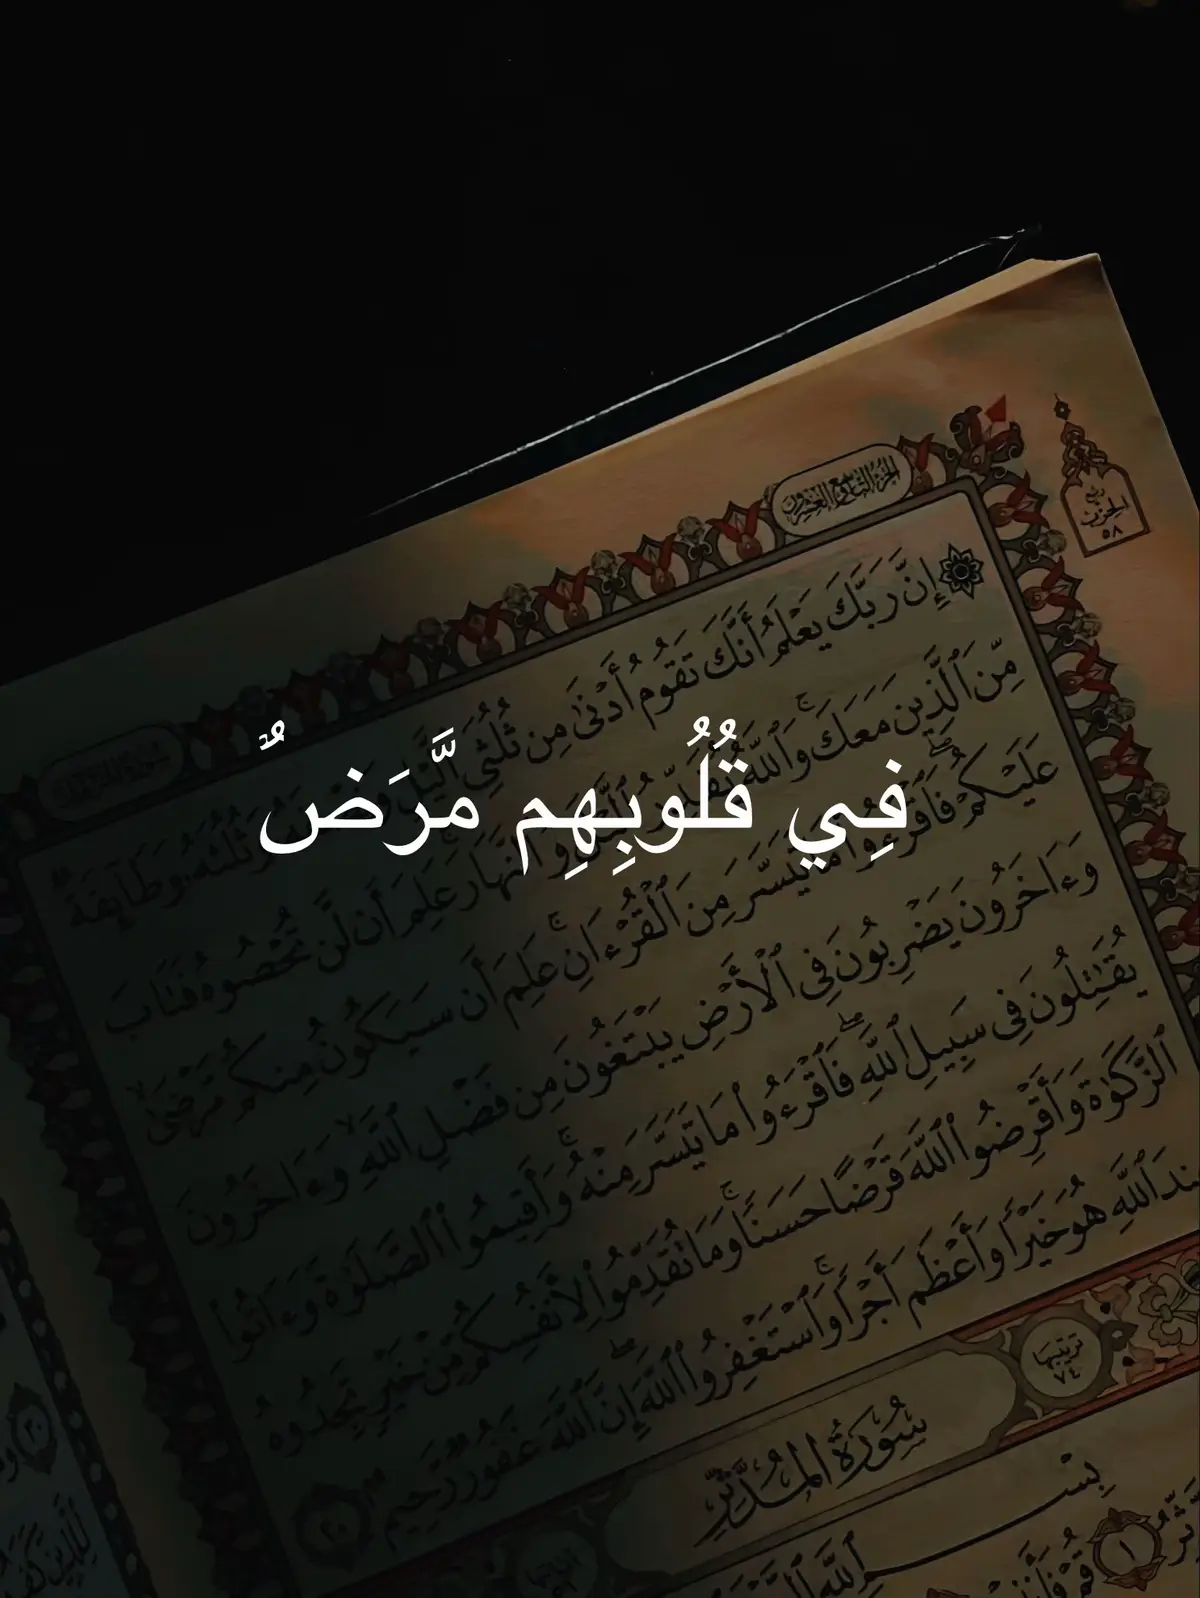 الجزء التاسع والعشرون
ربع
الحزب
٥٨
إِنَّ رَبَّكَ يَعْلَمُ أَنَّكَ تَقُومُ أَدْنَىٰ مِن ثُلُثَيِ ٱلَّيْلِ
وَثُلُثَهُۥ وَطَآئِفَةٌ
مِّنَ ٱلَّذِينَ مَعَكَ ۚ وَٱللَّهُ يُقَدِّرُ ٱلَّيْلَ وَٱلنَّهَارَ ۚ عَلِمَ أَن لَّن تُحْصُوهُ فَتَابَ
فِي قُلُوبِهِم مَّرَضٌ
عَلَيْكُمْ ۖ فَٱقْرَءُوا۟ مَا تَيَسَّرَ مِنَ ٱلْقُرْءَانِ ۚ عَلِمَ أَن سَيَكُونُ مِنكُم مَّرْضَىٰ ۙ
وَءَاخَرُونَ يَضْرِبُونَ فِى ٱلْأَرْضِ يَبْتَغُونَ مِن فَضْلِ ٱللَّهِ ۙ وَءَاخَرُونَ
يُقَـٰتِلُونَ فِى سَبِيلِ ٱللَّهِ ۖ فَٱقْرَءُوا۟ مَا تَيَسَّرَ مِنْهُ ۚ وَأَقِيمُوا۟ ٱلصَّلَوٰةَ وَءَاتُوا۟
ٱلزَّكَوٰةَ وَأَقْرِضُوا۟ ٱللَّهَ قَرْضًا حَسَنًا ۚ وَمَا تُقَدِّمُوا۟ لِأَنفُسِكُم مِّنْ خَيْرٍ تَجِدُوهُ
عِندَ ٱللَّهِ هُوَ خَيْرًا وَأَعْظَمَ أَجْرًا ۚ وَٱسْتَغْفِرُوا۟ ٱللَّهَ ۖ إِنَّ ٱللَّهَ غَفُورٌ رَّحِيمٌ ٢٠
ترتيبها
٧٤
سُورَةُ المُدَّثِّرِ
بِسْمِ ٱللَّهِ
١ قُمْ فَأَنذِرْ